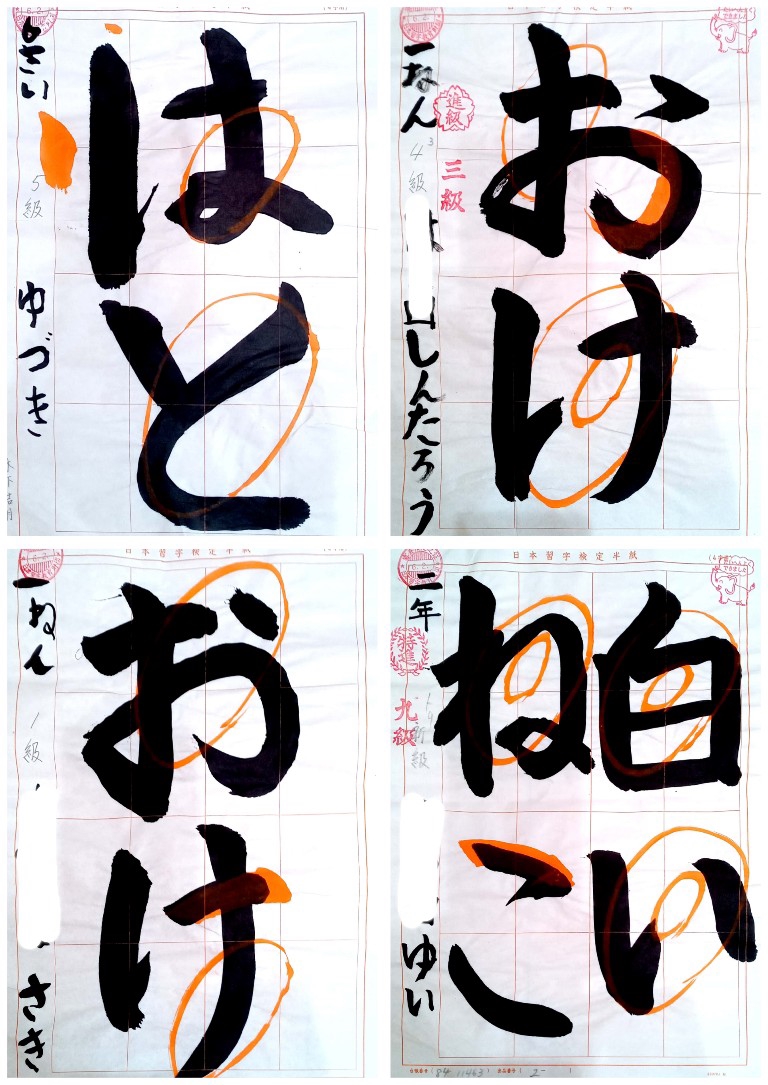 はと
5級
ゆづき
おけ
一ねん
4級
進級
三級
しんたろう
たいへんよく
できました
おけ
一ねん
1級
さき
日本習字検定半紙
日本習字検定半紙
白い
ねこ
二年
特進
九級
ゆい